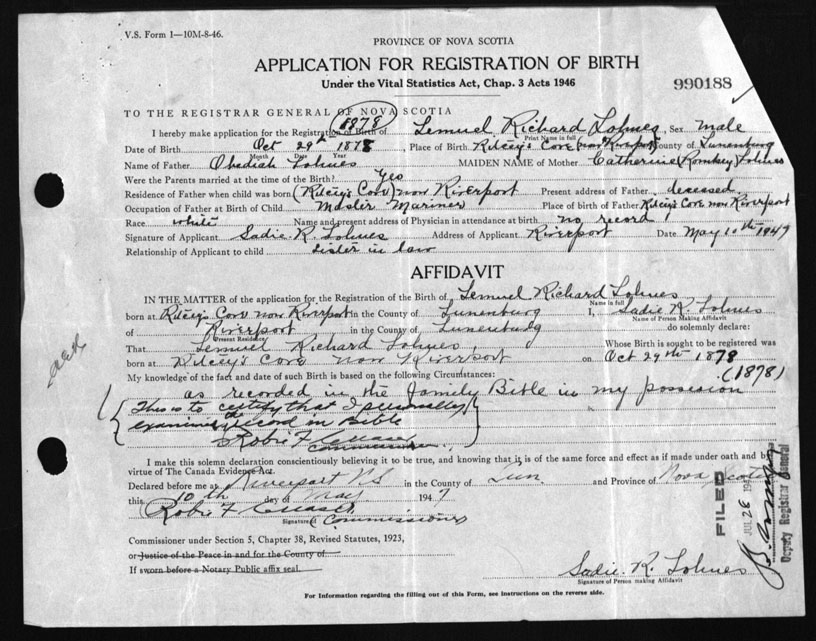 V.S. Form 1—10M-8-46.
PROVINCE OF NOVA SCOTIA
APPLICATION FOR REGISTRATION OF BIRTH
Under the Vital Statistics Act, Chap. 3 Acts 1946
990188
TO THE REGISTRAR GENERAL OF NOVA SCOTIA
1878
I hereby make application for the Registration of Birth of Lemuel Richard Lohnes, Sex male
Print Name in full
Date of Birth Oct 29th 1878, Place of Birth Ritcey's Cove (now Riverport) County of Lunenburg
Month Day Year
Name of Father Obediah Lohnes MAIDEN NAME of Mother Catherine (Romkey) Lohnes
Were the Parents married at the time of the Birth? Yes
Residence of Father when child was born (Ritcey's Cove) now Riverport Present address of Father deseased
Occupation of Father at Birth of Child Master Mariner Place of birth of Father Ritcey's Cove now Riverport
Race white Name and present address of Physician in attendance at birth no record
Signature of Applicant Sadie R. Lohnes Address of Applicant Riverport Date May 10th 1947
Relationship of Applicant to child sister in law
AFFIDAVIT
IN THE MATTER of the application for the Registration of the Birth of Lemuel Richard Lohnes
Name in full
born at Ritcey's Cove now Riverport in the County of Lunenburg I, Sadie R. Lohnes
Name of Person Making Affidavit
of Riverport in the County of Lunenburg do solemnly declare:
Present Residence
That Lemuel Richard Lohnes Whose Birth is sought to be registered
born at Ritcey's Cove now Riverport on Oct 29th 1878
My knowledge of the fact and date of such Birth is based on the following Circumstances: (1878)
as recorded in the family Bible in my possesion
This is to certify that I personally
examined the record in Bible
Robie F
Commissioner
I make this solemn declaration conscientiously believing it to be true, and knowing that it is of the same force and effect as if made under oath and by
virtue of The Canada Evidence Act.
Declared before me at Riverport N.S in the County of Lun and Province of Nova Scotia
this 10th day of May 1947
Robie F
Signature of Commissioner
Commissioner under Section 5, Chapter 38, Revised Statutes, 1923,
or Justice of the Peace in and for the County of
If sworn before a Notary Public affix seal.
Sadie R. Lohnes
Signature of Person making Affidavit
For Information regarding the filling out of this Form, see instructions on the reverse side.
FILED
JUL 28 1947
Deputy Registrar General